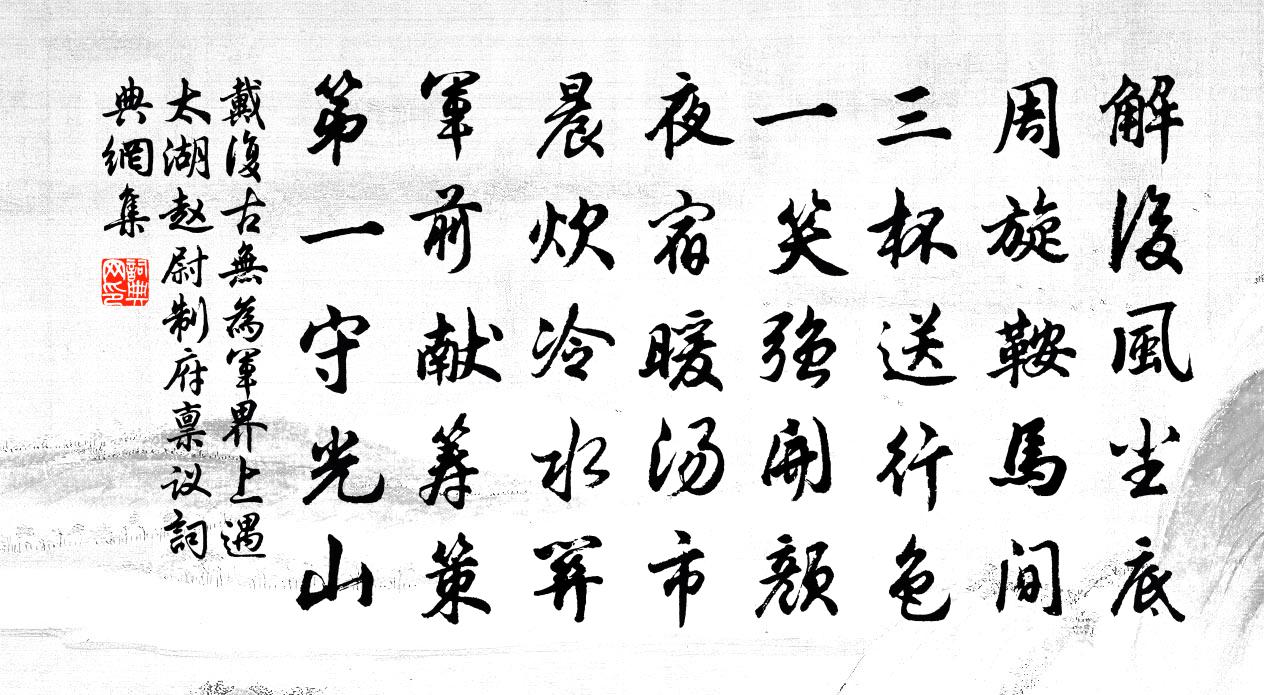 解後風尘底
周旋鞍馬間
三杯送行色
一笑强開顏
夜宿暖湯市
晨炊冷水關
軍前献筹策
第一守光山
戴復古無為軍界上遇
太湖赵尉制府禀议詞
典網集
詞典
网印